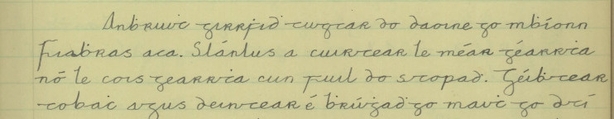 Anbruit girrfid tugtar do daoine go mbíonn
Fiabras aca. Slánlus a cuirtear le méar géarrta
nó le cois gearrta cun fuil do stopad. Géibtear
tobac agus deintear é brúgad go mait go dtí